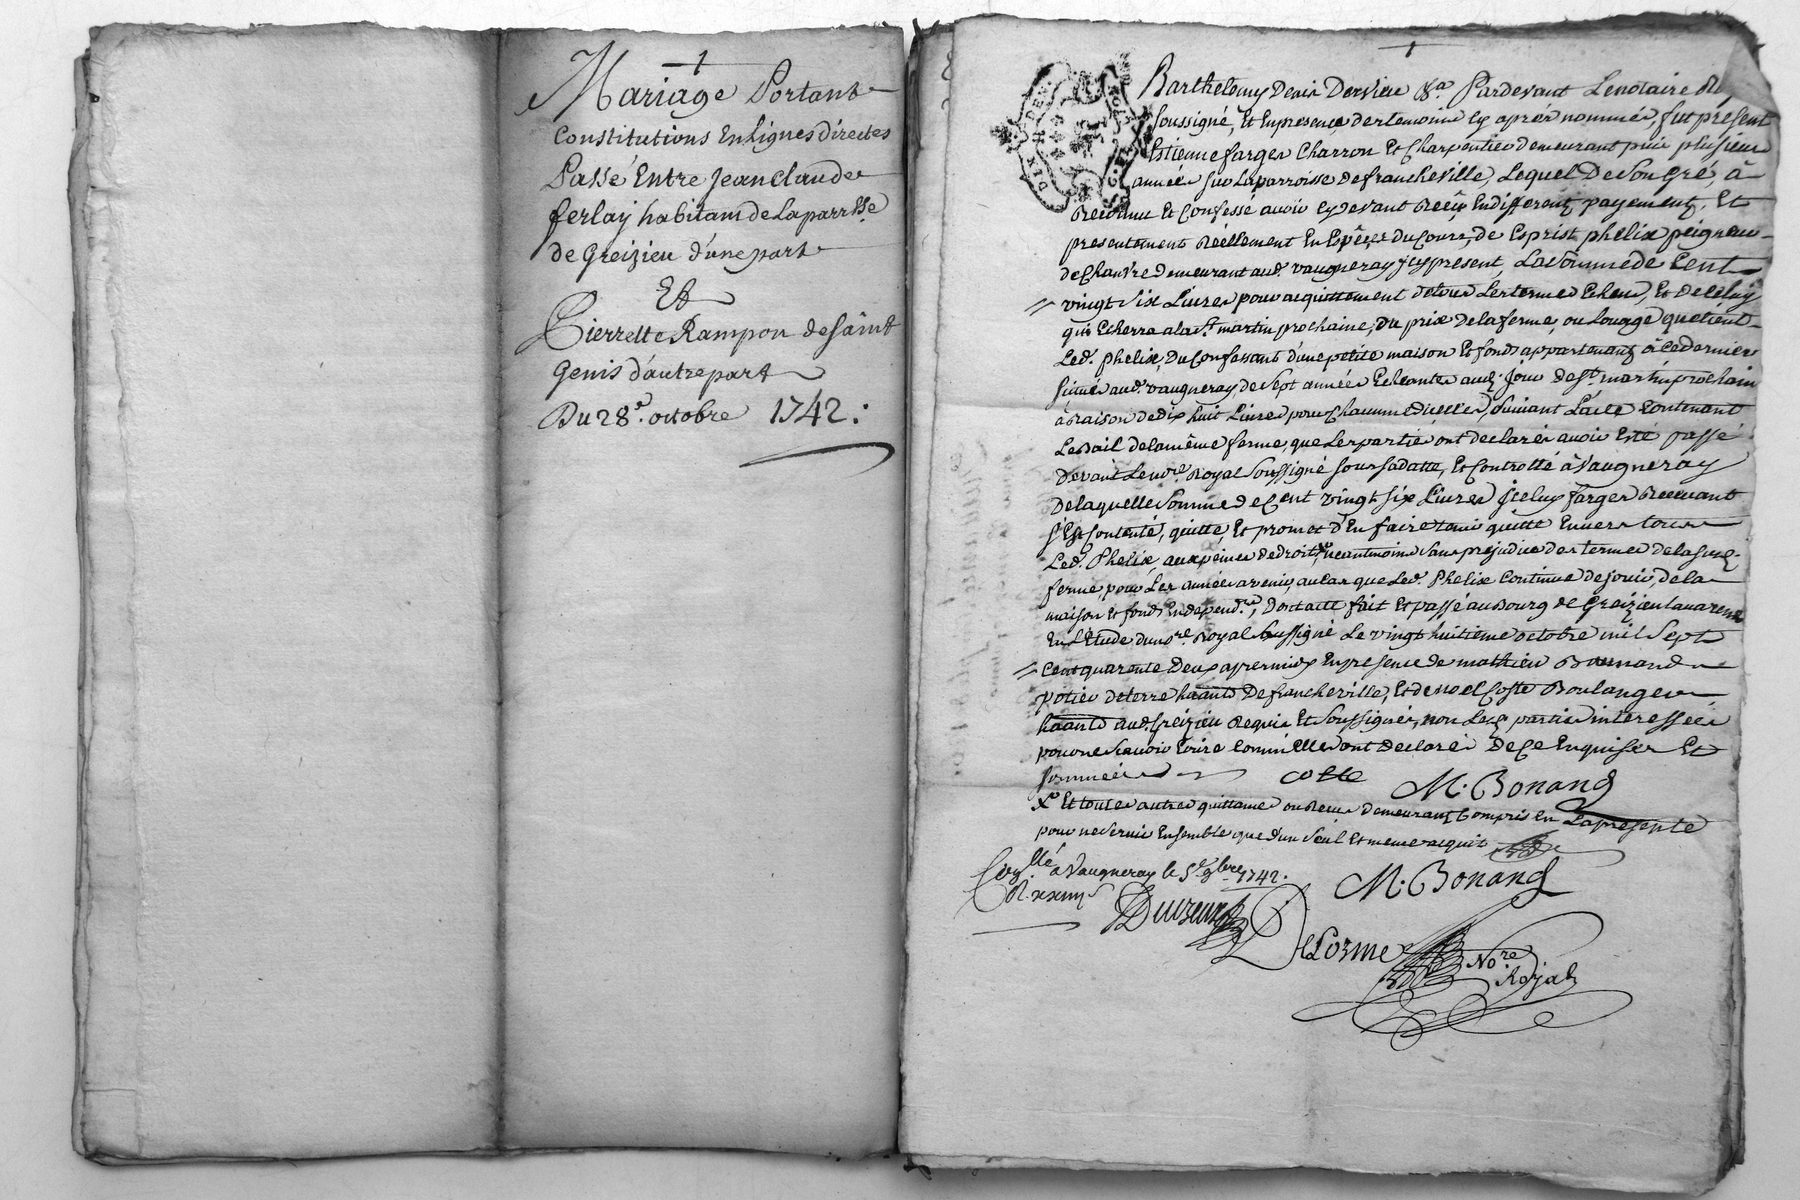 Mariage Portant
Constitutions En Lignes directes
Passé Entre Jean claude
ferlay habitant de Laparrsse
de Greizieu d'une part
Et
Pierrette Rampon de saint
Genis d'autre part
Du 28e. octobre 1742.
Barthelemy Denis Dervieu Pardevant Lenotaire
soussigné, Et En presence des temoins cy aprés nommés, fut present
Estienne farges Charron Et Charpentier demeurant puis plusieurs
années sur Laparroisse de francheville, Lequel De Son Gré, à
Reconnu Et Confessé avoir cy devant Reçû En differents payements, Et
presentement Réellement En Espêces du Cours, de Esprist phelix peigneur
de Chanvre demeurant aud. vaugneray jcy present, La Somme de Cent
vingt six Livres pour acquittement de tous Les termes Echeus, Et de Celuy
qui Echerra a la st. martin prochaine, du prix de la ferme, ou Louage que tient
Led. phelix, du Confessant d'une petite maison Et fonds appartenants à Ce dernier
situés aud. vaugneray, de Sept années Echeantes aud. jour de st. martin prochain
à Raison de dix huit Livres pour Chacune d'icelles, suivant L'acte Contenant
Le Bail de la même ferme, que Les parties ont declarés avoir Esté passé
devant Le nore. Royal Soussigné sous sa datte, Et Controllé à Vaugneray
De laquelle Somme de Cent vingt six Livres jceluy farges Recevant
s'Est Contenté, quitte, Et promet d'En faire tenir quitte Envers tous
Led. Phelix, aux peines de droit, neantmoins sans prejudice des termes de la susd.
ferme pour Les années avenir, au Cas que Led. Phelix Continue de jouir de la
maison et fonds En dependts., Dont acte fait Et passé au Bourg de Greizieu lavarenne
En L'Etude du nore. Royal Soussigné Le vingt huitieme octobre mil Sept
Cent quarante deux apres midy En presence de mathieu Bonnand
potier de terre haants De francheville, Et de noel Coste Boulanger
haants aud. Greizieu Requis Et soussignés, non Lesd. parties interessées
pour ne Scavoir Ecrire Comm'Elles ont Declarés De Ce Enquises Et
sommées
coste M. Bonand
Et toutes autres quittances ou Recus demeurants Compris En La presente
pour ne servir Ensemble que d'un Seul Et meme acquit
M. Bonand
à Vaugneray le 5e 9bre 1742.
DeLorme Nore
Royal